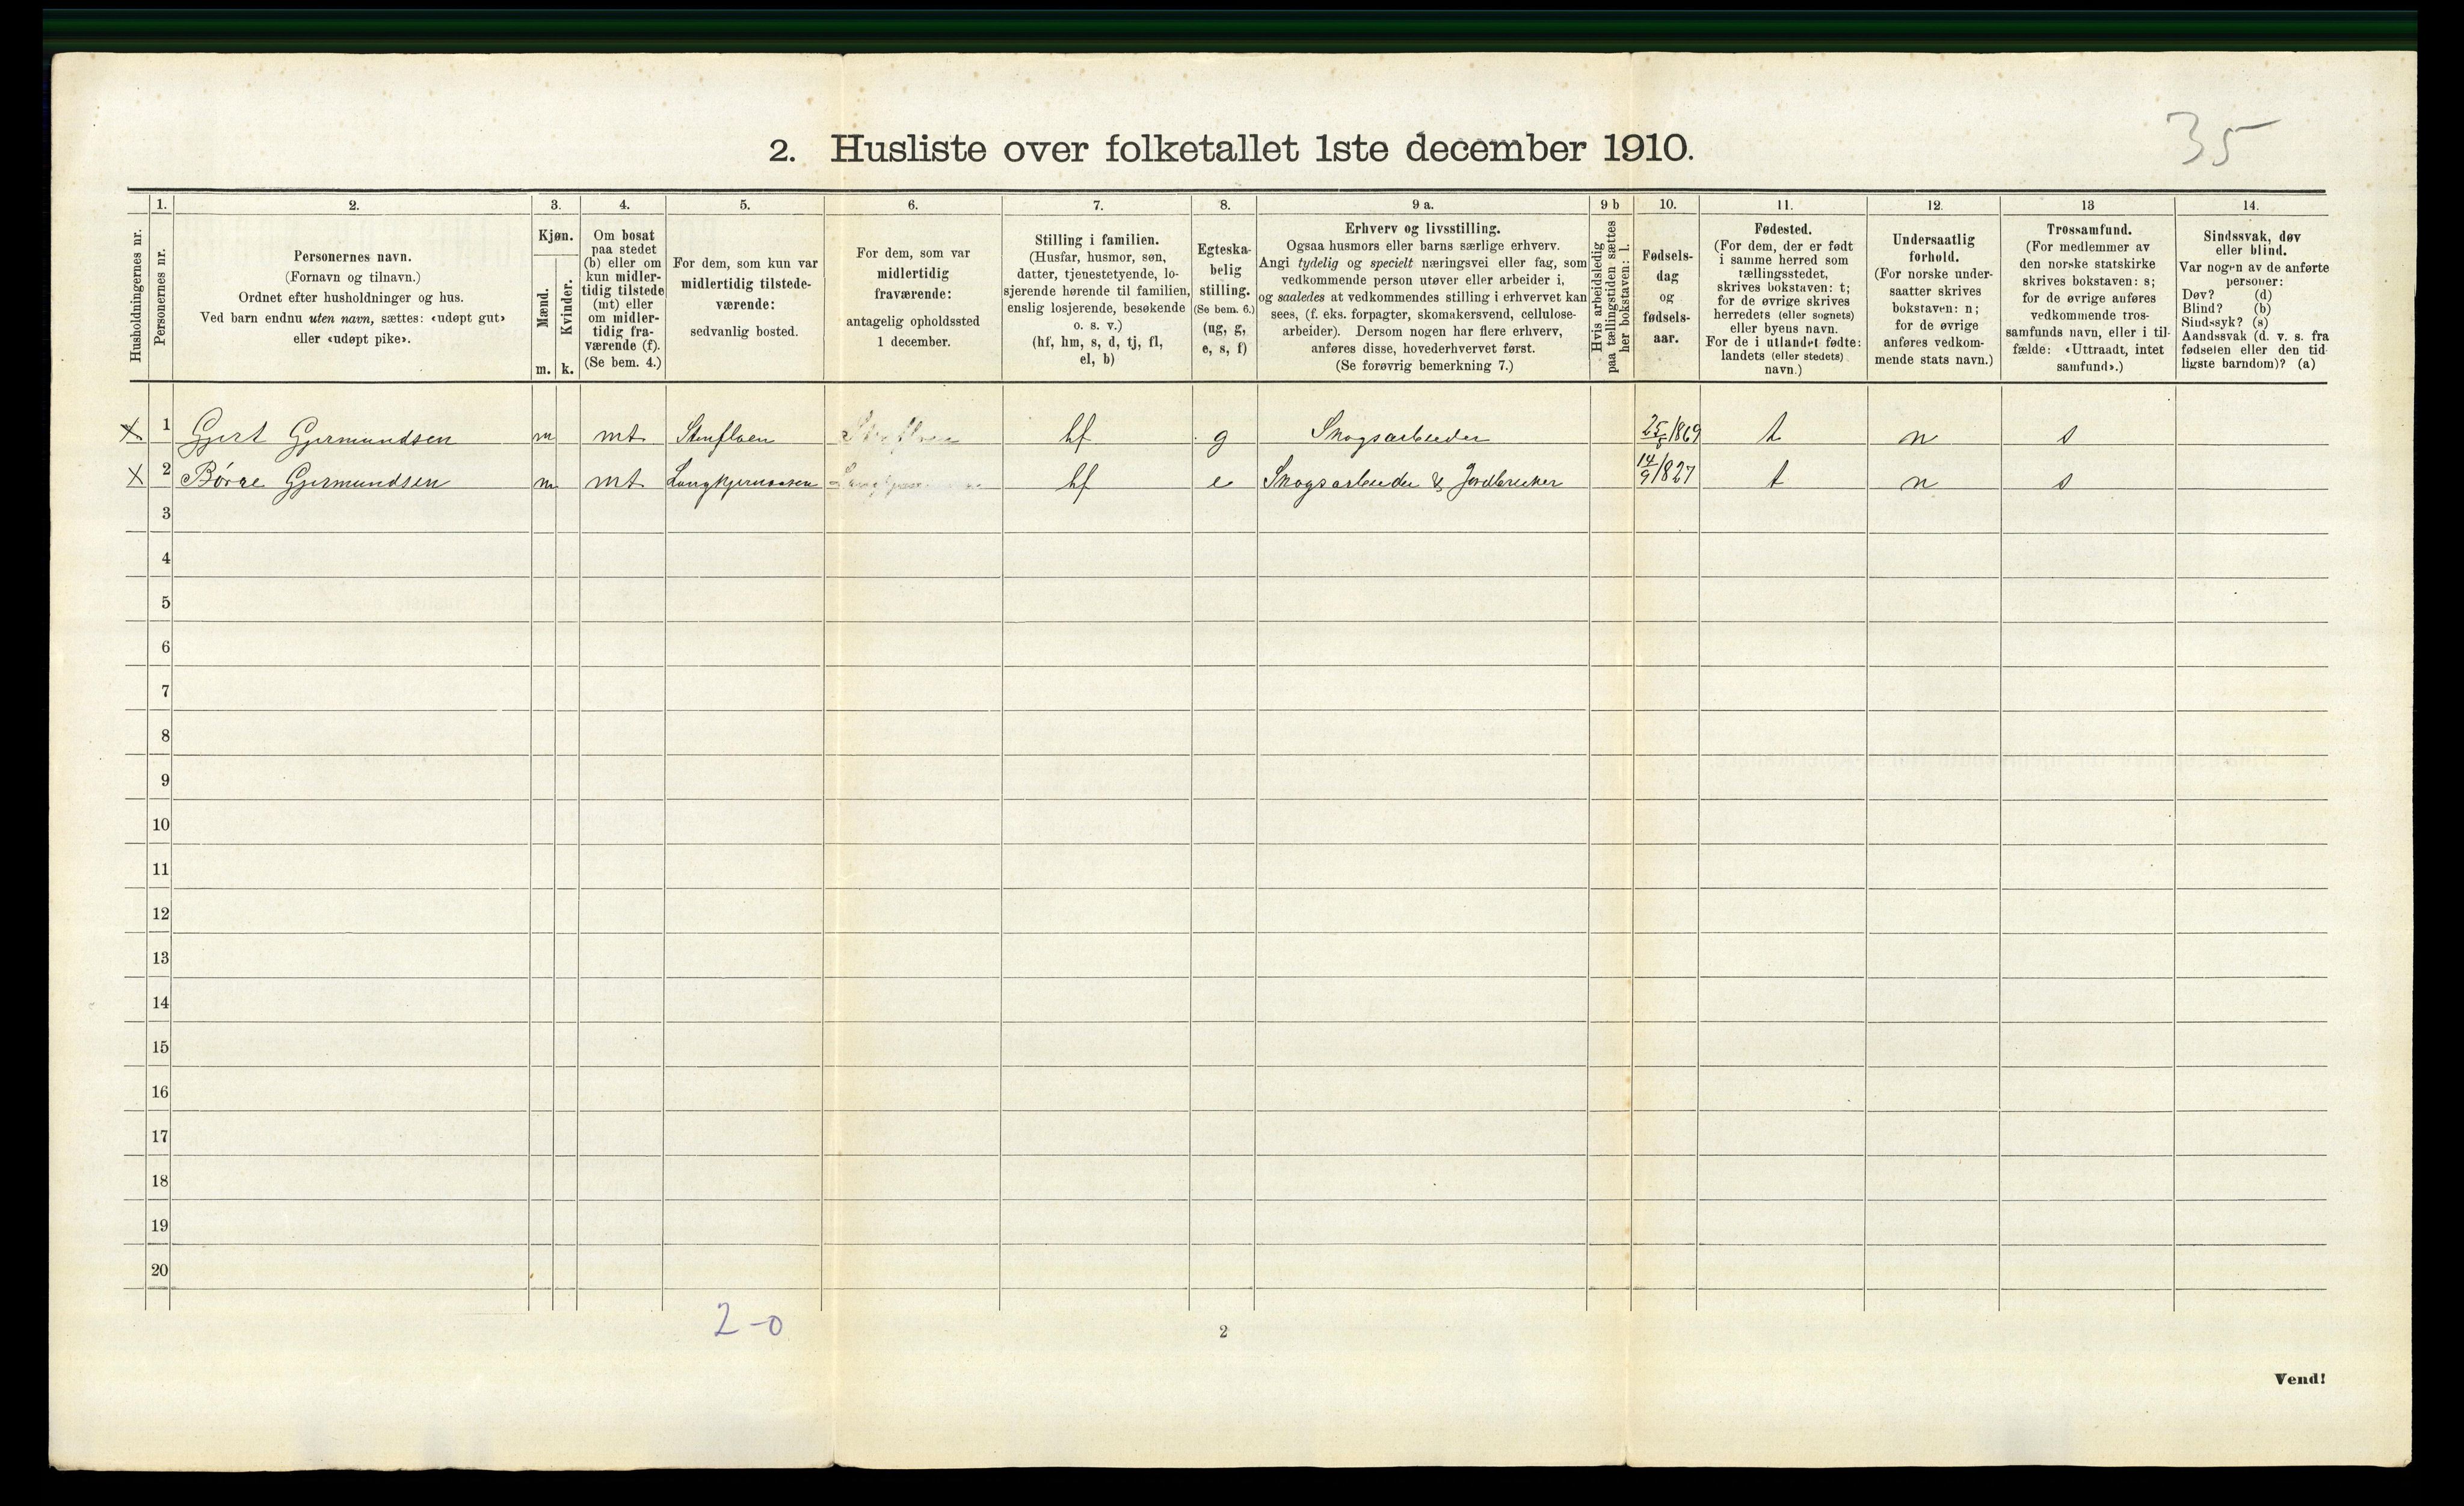 35
2. Husliste over folketallet 1ste december 1910.
Husholdningernes nr.
1.
Personernes nr.
2.
Personernes navn.
(Fornavn og tilnavn.)
Ordnet efter husholdninger og hus.
Ved barn endnu uten navn, sættes: «udøpt gut»
eller «udøpt pike».
3.
Kjøn.
Mænd.
Kvinder.
m.
k.
4.
Om bosat
paa stedet
(b) eller om
kun midler-
tidig tilstede
(mt) eller
om midler-
tidig fra-
værende (f).
(Se bem. 4.)
5.
For dem, som kun var
midlertidig tilstede-
værende:
sedvanlig bosted.
6.
For dem, som var
midlertidig
fraværende:
antagelig opholdssted
1 december.
7.
Stilling i familien.
(Husfar, husmor, søn,
datter, tjenestetyende, lo-
sjerende hørende til familien,
enslig losjerende, besøkende
o. s. v.)
(hf, hm, s, d, tj, fl,
el, b)
8.
Egteska-
belig
stilling.
(Se bem. 6.)
(ug, g,
e, s, f)
9 a.
Erhverv og livsstilling.
Ogsaa husmors eller barns særlige erhverv.
Angi tydelig og specielt næringsvei eller fag, som
vedkommende person utøver eller arbeider i,
og saaledes at vedkommendes stilling i erhvervet kan
sees, (f. eks. forpagter, skomakersvend, cellulose-
arbeider). Dersom nogen har flere erhverv,
anføres disse, hovederhvervet først.
(Se forøvrig bemerkning 7.)
9 b
Hvis arbeidsledig
paa tællingstiden sættes
her bokstaven: l.
10.
Fødsels-
dag
og
fødsels-
aar.
11.
Fødested.
(For dem, der er født
i samme herred som
tællingsstedet,
skrives bokstaven: t;
for de øvrige skrives
herredets (eller sognets)
eller byens navn.
For de i utlandet fødte:
landets (eller stedets)
navn.)
12.
Undersaatlig
forhold.
(For norske under-
saatter skrives
bokstaven: n;
for de øvrige
anføres vedkom-
mende stats navn.)
13
Trossamfund.
(For medlemmer av
den norske statskirke
skrives bokstaven: s;
for de øvrige anføres
vedkommende tros-
samfunds navn, eller i til-
fælde: «Uttraadt, intet
samfund».)
14.
Sindssvak, døv
eller blind.
Var nogen av de anførte
personer:
Døv? (d)
Blind? (b)
Sindssyk? (s)
Aandssvak (d. v. s. fra
fødselen eller den tid-
ligste barndom)? (a)
X 1 Gjert Gjermundsen m mt Stenfloen hf g Skogsarbeider 25/8 1869 t n s
X 2 Børre Gjermundsen m mt hf e Skogsarbeider & Jordbruker 14/9 1827 t n s
3
4
5
6
7
8
9
10
11
12
13
14
15
16
17
18
19
20
2-0
2
Vend!